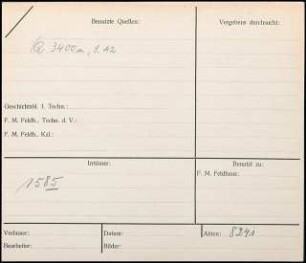 Benutzte Quellen:
Vergebens durchsucht:
3400m, 1. A2
Geschichtsbl. f. Techn.:
F. M. Feldh., Techn. d. V.:
F. M. Feldh., Kal.:
Irrtümer:
Benutzt zu:
F. M. Feldhaus:
1585
Verfasser:
Daten:
Akten: 8241
Bearbeiter:
Bilder: